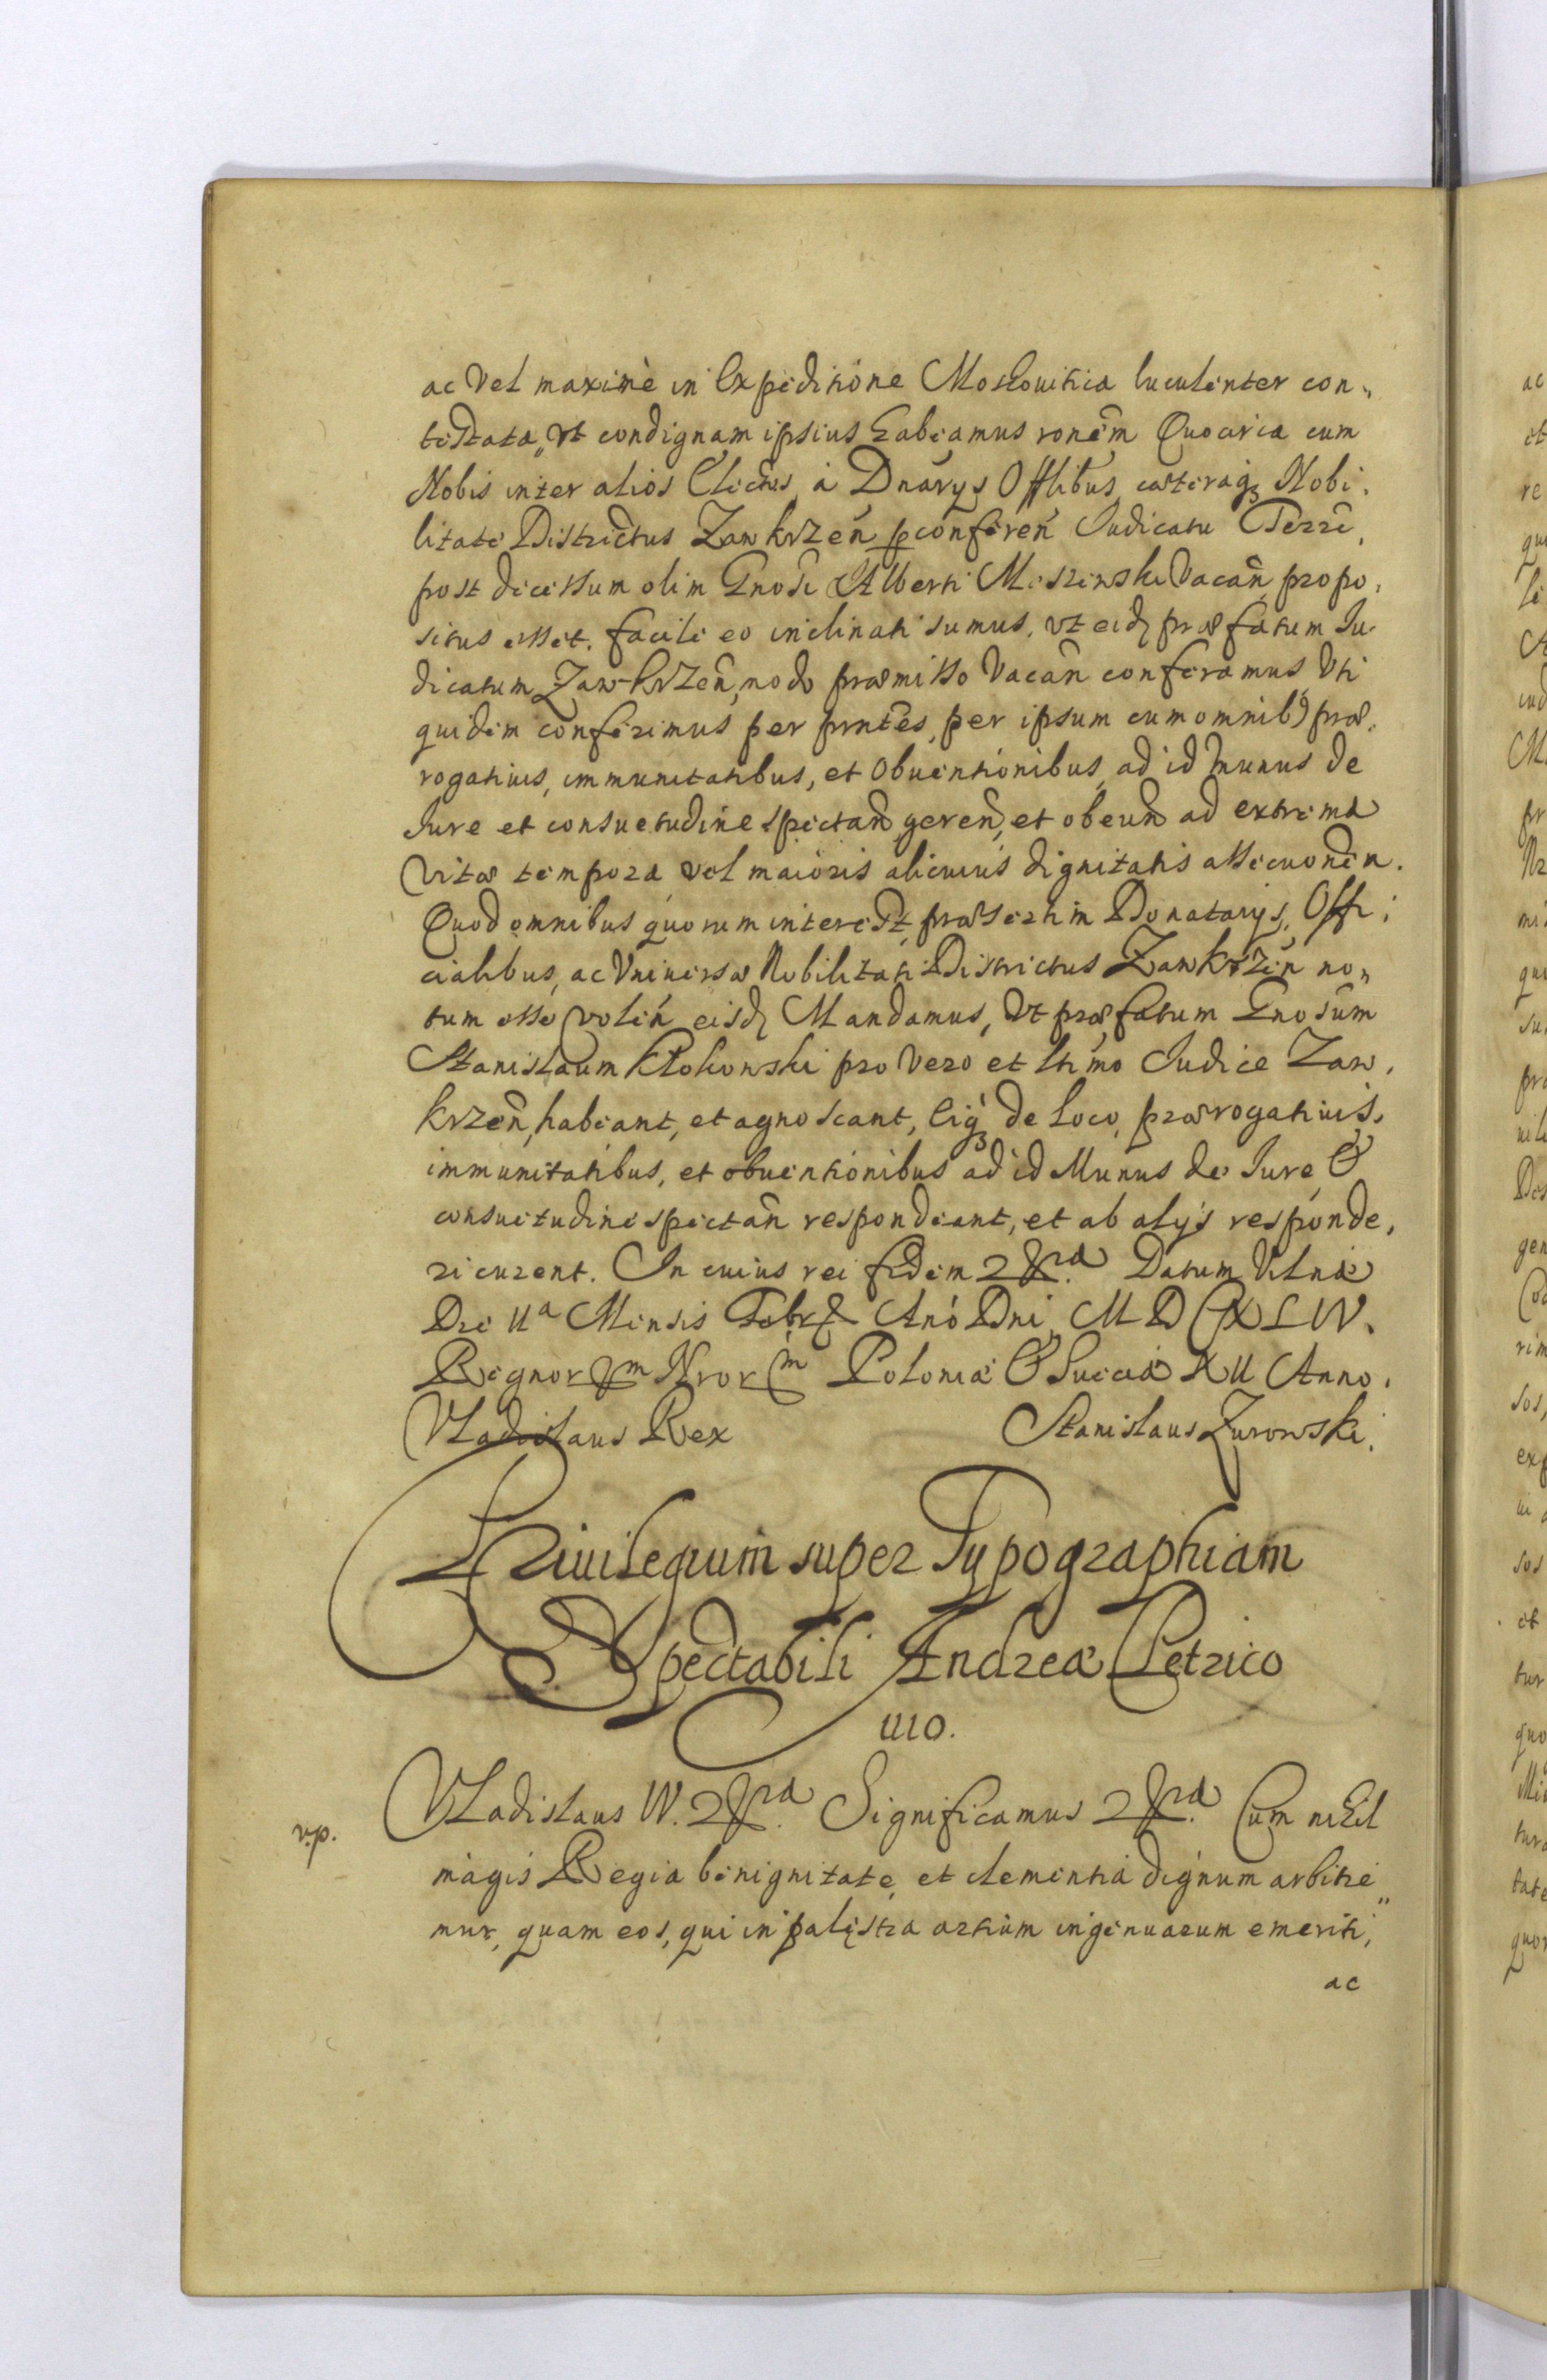 ac Vel maximè in Expeditione Moscouitica luculenter con„
testata, Vt condignam ipsius habeamus ronēm Quocirca cum
Nobis inter alios Electus à Dnārys Offlibus cæteraq3 Nobi,
litate Districtus Zawkrzeń p conferēn Iudicatu Terrē,
post decessum olim Gnosi Alberti Moszenski Vacān, propo,
situs esset. facile eo inclinati sumus, vt eidē præfatum Iu-
dicatum Zawkrzeń, modo præmisso Vacān conferamus Vti
quidem conferimus per pntēs, per ipsum cum omnib9 præ,
rogatiuis, immunitatibus, et Obuentionibus, ad id Munus de
Iure et consuetudine spectān, gerēn, et obeūn ad extrema
Vitæ tempora vel maioris alicuius dignitatis assecuōnem.
Quod omnibus quorum interest, præsertim Donatarys, Offi,
cialibus, ac Vniuersæ Nobilitati Districtus Zawkrzēn no„
tum esse volēn eisdē Mandamus, Vt præfatum Gnosūm
Stanislaum Klokowski pro Vero et ltimo Iudice Zaw,
krzēn, habeant, et agnoscant, Eiq3 de Loco, prærogatiuis,
immunitatibus, et obuentionibus ad id Munus de Iure &
consuetudine spectān respondeant, et ab alys responde,
ri curent. In cuius rei fidem &ra. Datum Vilnæ
Die IIa Mensis Febr Anō Dni, M D CXLIV.
Regnorum Nrorum Poloniæ & Sueciæ XII Anno.
Vladislaus Rex Stanislaus Zurowski.
Priuilegium super Typographiam
Spectabili Andreæ Petrico
uio.
v.p.
Vladislaus IV. &ra. Significamus &ra. Cum nihil
magis Regia benignitate, et clementia dignum arbitre„
mur, quam eos, qui in palęstra artium ingenuarum emeriti,
ac